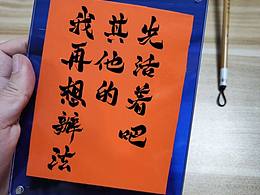 先活着吧
其他的
我再想辦法